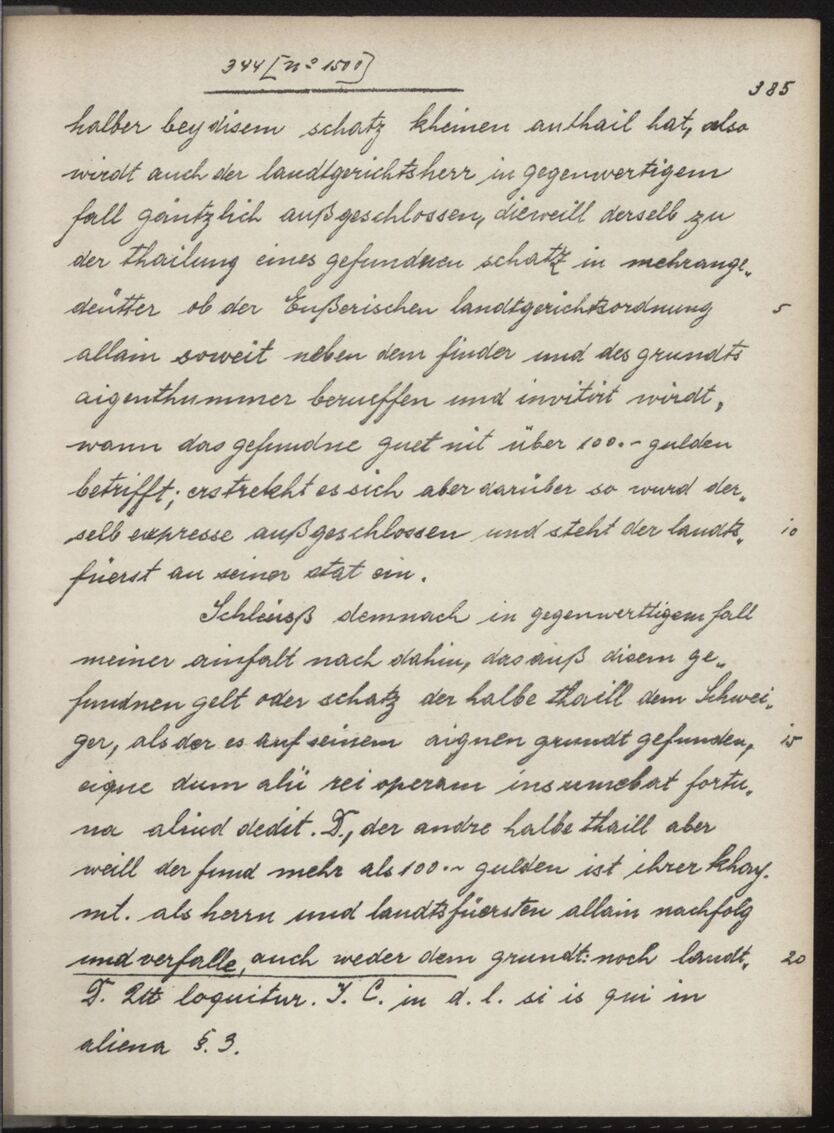 344 [No 1500]
385
halber bey disem schatz kheinen anthail hat, also
wirdt auch der landtgerichtsherr in gegenwertigem
fall gäntzlich außgeschlossen, dieweill derselb zu
der thailung eines gefundnen schatz in mehrange„
deütter ob der Enßerischen landtgerichtsordnung 5
allain soweit neben dem finder und des grundts
aigenthummer berueffen und invitirt wirdt,
wann das gefundne guet nit über 100.- gulden
betrifft; erstrekht es sich aber darüber so wurd der„
selb expresse außgeschlossen und steht der landts„ 10
füerst an seiner stat ein.
Schleüsß demnach in gegenwerttigem fall
meiner ainfalt nach dahin, das auß disem ge„
fundnen gelt oder schatz der halbe thaill dem Schwei„
ger, als der es auf seinem aignen grundt gefunden, 15
eique dum alii rei operam insumebat fortu„
na aliud dedit. D., der andre halbe thaill aber
weill der fund mehr als 100.- gulden ist ihrer khay.
mt. als herrn und landtsfüersten allain nachfolg
und verfalle, auch weder dem grundt: noch landt„ 20
D. loquitur. I. C. in d. l. si is qui in
aliena §. 3.